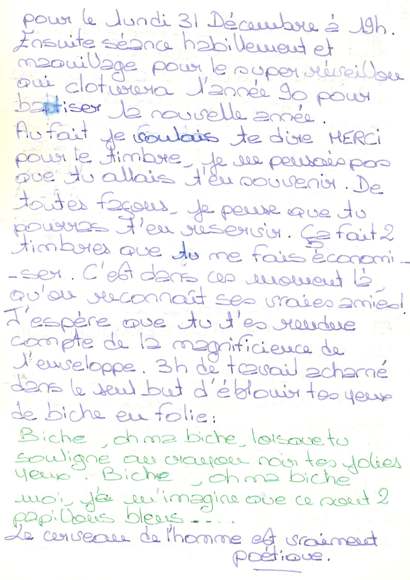 pour le lundi 31 Décembre à 19h.
Ensuite séance habillement et
maquillage pour le super réveillon
qui cloturera l'année 90 pour
baptiser la nouvelle année.
Au fait je voulais te dire MERCI
pour le timbre, je ne pensais pas
que tu allais t'en souvenir. De
toutes façons, je pense que tu
pourras t'en reservir. Ça fait 2
timbres que tu me fais économi-
-ser. C'est dans ces moment là,
qu'on reconnaît ses vraies amies!
J'espère que tu t'es rendue
compte de la magnificience de
l'enveloppe. 3h de travail acharné
dans le seul but d'éblouir tes yeux
de biche en folie:
Biche, oh ma biche, lorsque tu
souligne au crayon noir tes jolies
yeux. Biche, oh ma biche
moi, j'en m'imagine que ce sont 2
papillons bleus....
Le cerveau de l'homme est vraiment
poétique.